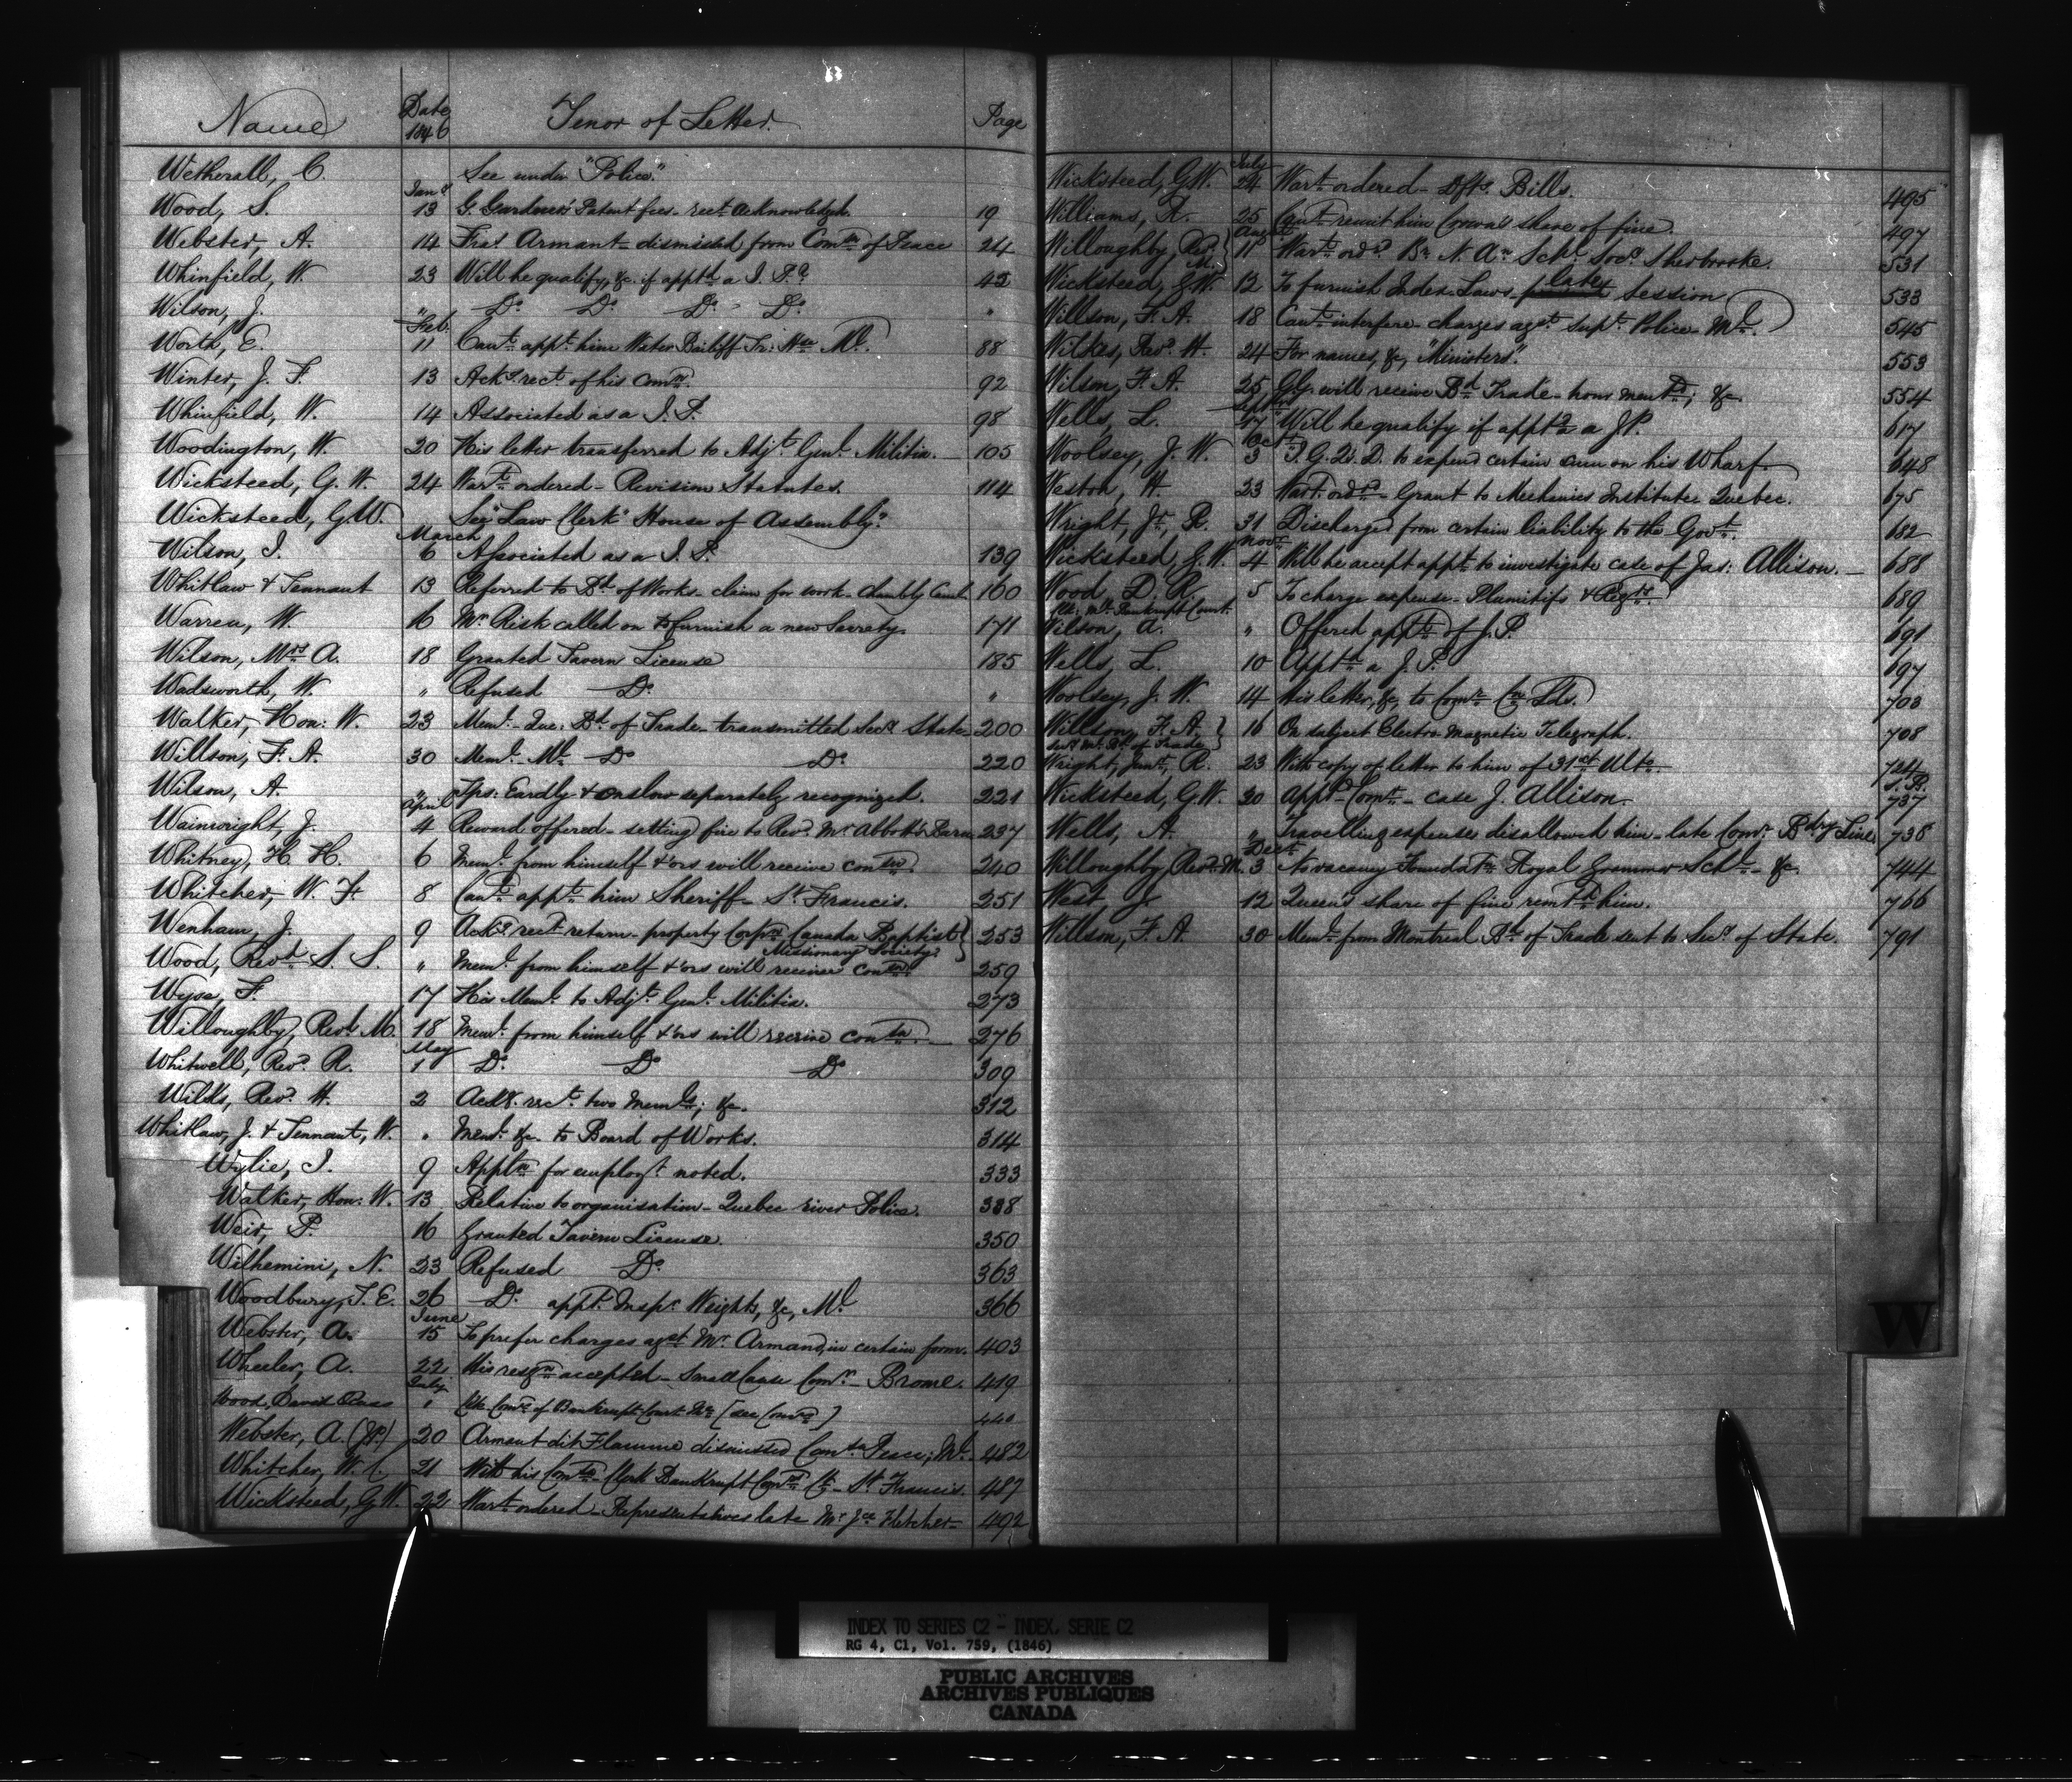 Name Date 1846 Tenor of Letter. Page
Wetherall, C. See under "Police."
Jany
Wood, S. 13 G. Gardner's Patent fees - rect. acknowledged. 19
Webster, A. 14 Fras. Armant - dismissed from Comn. of Peace 24
Whinfield, W. 23 Will he qualify, &c. if apptd. a J. P.? 42
Wilson, J. " Do. Do. Do. Do. "
Feb.
Worth, E. 11 Can't appt. him Water Bailiff Tr: Hse Ml. 88
Winter, J. F. 13 Ackd. rect. of his comn. 92
Whinfield, W. 14 Associated as a J. P. 98
Woodington, W. 20 His letter transferred to Adjt. Genl. Militia. 105
Wicksteed, G. W. 24 Wart. ordered - Revision Statutes. 114
Wicksteed, G.W. See "Law Clerk" House of Assembly."
March
Wilson, J. 6 Associated as a J. P. 139
Whitlaw & Tennant 13 Referred to Bd. of Works - claim for work - Chambly Canl. 160
Warren, W. 16 Mr. Risk called on to furnish a new Surety. 171
Wilson, Mrs A. 18 Granted Tavern License 185
Wadsworth, W. " Refused Do. "
Walker, Hon: W. 23 Meml. Que: Bd. of Trade - transmitted Secy. State 200
Willson, F. A. 30 Meml. Ml. Do. Do. 220
Wilson, A. " Tps: Eardly & Onslow separately recognized. 221
April
Wainwright, J. 4 Reward offered - setting fire to Revd. Mr. Abbott's Barn 237
Whitney, H. H. 6 Meml. from himself & ors will receive conson. 240
Whitcher, W. F. 8 Can't appt. him Sheriff - St. Francis. 251
Wenham, J. 9 Ackd. rect. return - property Corpn. Canada Baptist Missionary Society. 253
Wood, Revd. S. S. " Meml. from himself & ors will receive conson. 259
Wyse, F. 17 His Meml. to Adjt. Genl. Militia. 273
Willoughby, Revd. M. 18 Meml. from himself & ors will receive conson. 276
May
Whitwell, Revd. R. 1 Do. Do. Do. 309
Wilks, Revd. H. 2 Ackd. rect. two Memls; &c. 312
Whitlaw, J. & Tennant, W. " Meml. &c. to Board of Works. 314
Wylie, J. 9 Appln. for employt. noted. 333
Walker, Hon: W. 13 Relative to organisation - Quebec river Police. 338
Weir, P. 16 Granted Tavern License. 350
Wilhemini, N. 23 Refused Do. 363
Woodbury, T. E. 26 Do. appt. Inspr. Weights, &c, Ml. 366
June
Webster, A. 15 To prefer charges agst. Mr. Armand, in certain form. 403
Wheeler, A. 22 His resgn. accepted - Small Cause Comr. - Brome. 419
July
Wood, David Ross " Clk. Comr. of Bankrupt Court Ml. [see Comrs.] 440
Webster, A. (J.P.) 20 Armant dit Flamme dismissed Comsn. Peace; Ml. 482
Whitcher, W. C. 21 With his Comsn. Clerk Bankrupt Comr. Ct. - St. Francis. 487
Wicksteed, G.W. 22 Wart. ordered - Representatives late Mr. Jce. Fletcher - 492
July
Wicksteed, G.W. 24 Wart. ordered - Dfts. Bills. 495
Williams, R. 25 Can't remit him Crown's share of fine. 497
Augt.
Willoughby, Revd. M. 11 Wart. ordd. Bh. N. An. Schl. Socy. Sherbrooke. 531
Wicksteed, G.W. 12 To furnish Index Laws late Session 533
Willson, F. A. 18 Can't interfere - charges agst. Supt. Police Ml. 545
Wilkes, Revd. H. 24 For names, &c, "Ministers". 553
Wilson, F. A. 25 G.G. will receive Bd. Trade - hour mentd.; &c. 554
Septr.
Wells, L. 17 Will he qualify if apptd. a J.P. 617
Octr.
Woolsey, J. W. 3 I. G. 2s. D. to expend certain sum on his Wharf. 648
Weston, H. 23 Wart. ordd. - Grant to Mechanics Institute Quebec. 675
Wright, Jr., R. 31 Discharged from certain liability to the Govt. 682
Novr.
Wicksteed, G. W. 4 Will he accept appt. to investigate case of Jas: Allison. 688
Wood, D. R. 5 To charge expense - Plumitifs & Regtrs. 689
Clk. Ml. Bankrupt Court.
Wilson, A. " Offered apptt. of J.P. 691
Wells, L. 10 Apptd. a J. P. 697
Woolsey, J. W. 14 His letter, &c, to Comr. Cn. Lds. 703
Willson, F. A. 16 On subject Electro Magnetic Telegraph. 708
Secy. Ml. Bd. of Trade
Wright, Junr., R. 23 With copy of letter to him of 31st Ulto. 724
Wicksteed, G.W. 30 Apptd. Comr. - case J. Allison. 737
Wells, A. " Travelling expenses disallowed him - late Comr. Bdry Line 738
Decr.
Willoughby, Revd. M. 3 No vacancy Foundatn. Royal Grammar Schl. - &c. 744
West J. 12 Queen's share of fine remtd. him. 766
Willson, F. A. 30 Meml. from Montreal Bd. of Trade sent to Secy. of State. 791
W
INDEX TO SERIES C2 - INDEX, SERIE C2
RG 4, C1, Vol. 759, (1846)
PUBLIC ARCHIVES
ARCHIVES PUBLIQUES
CANADA